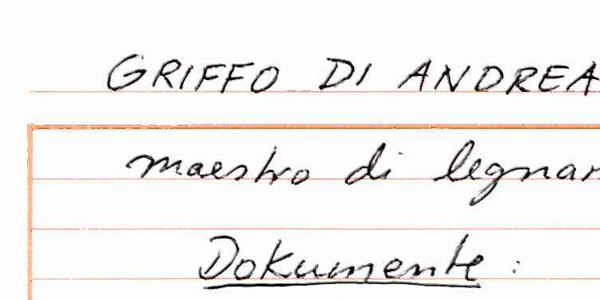 GRIFFO DI ANDREA
maestro di legnam
Dokumente :